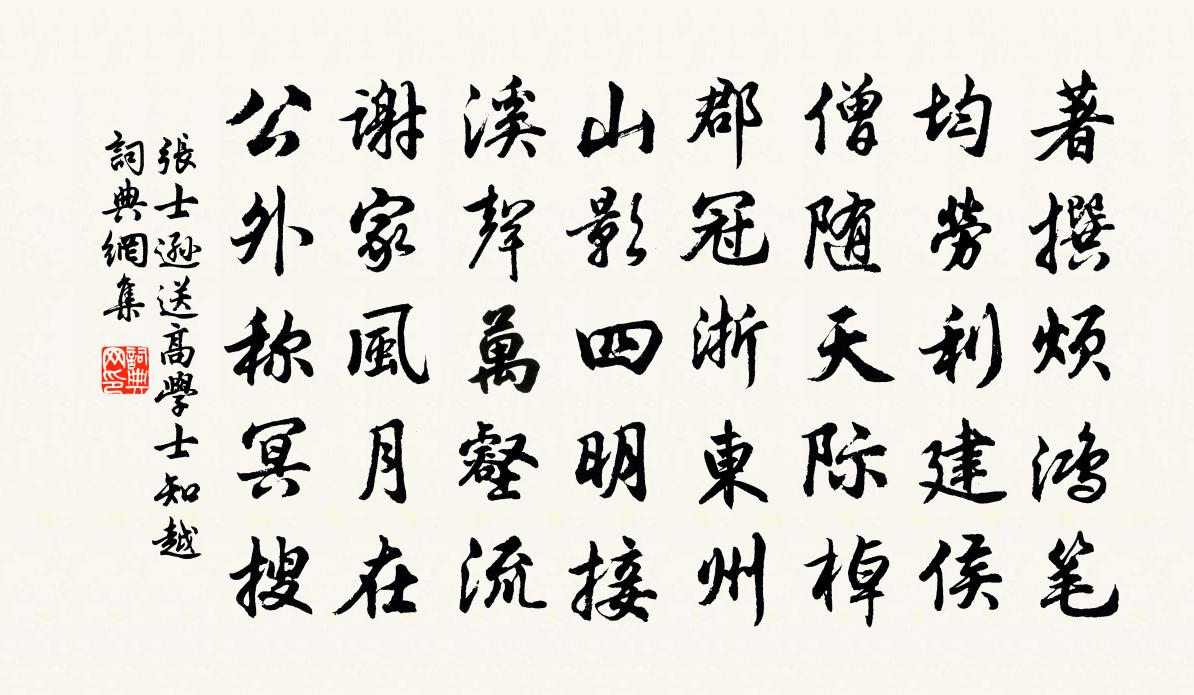 著撰煩鴻笔
均勞利建侯
僧随天际棹
郡冠浙東州
山影四明接
溪聲萬壑流
謝家風月在
公外称冥搜
張士遜送高學士知越
詞典網集
詞典网印